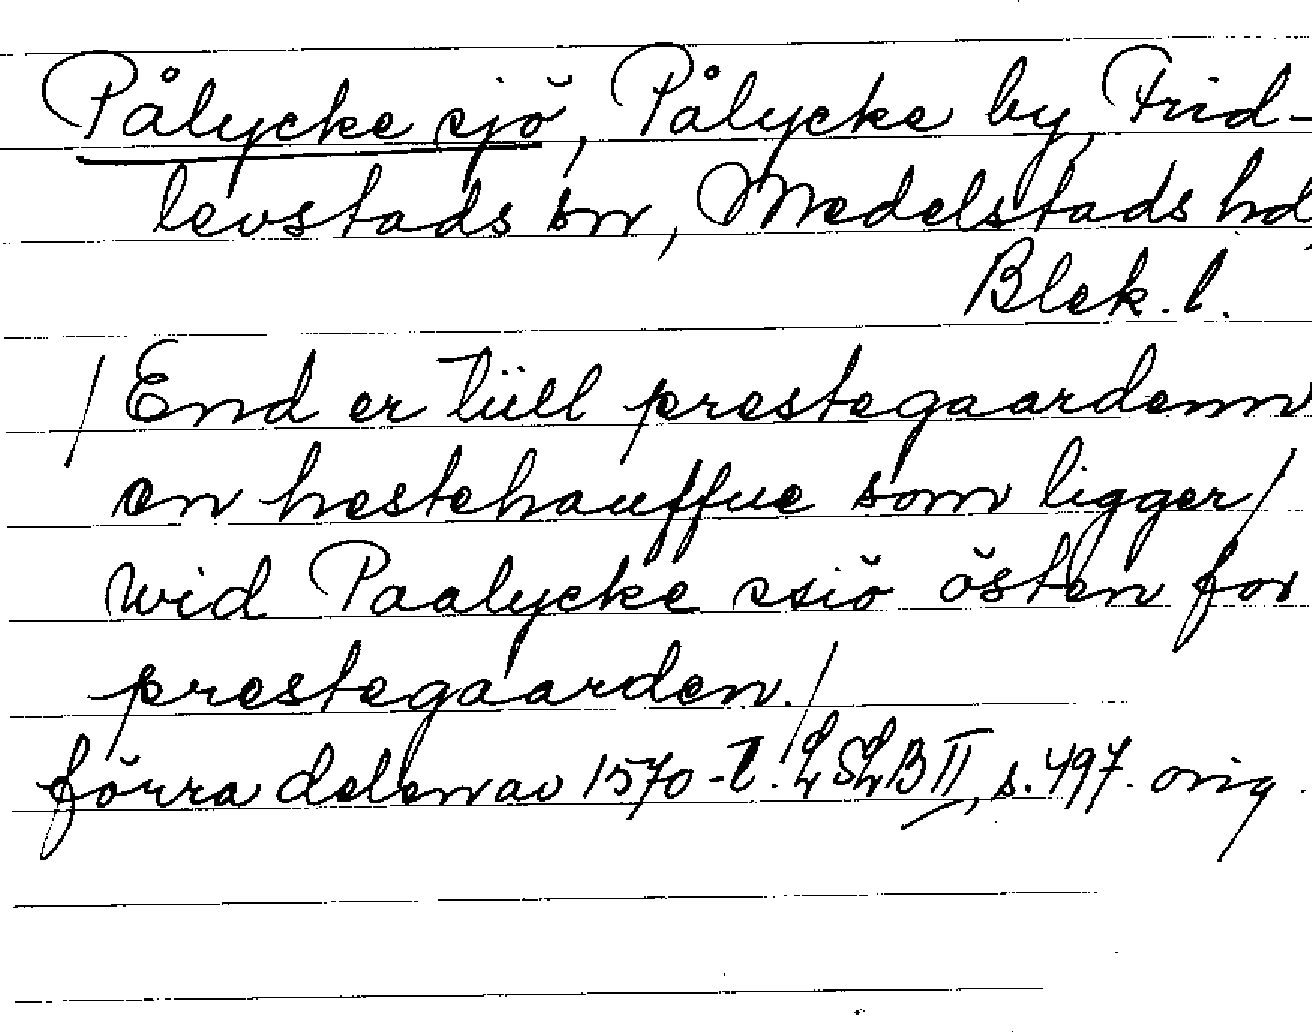 Pålycke sjö, Pålycke by, Frid-
levstads sn, Medelstads hd,
Blek. l.
/ End er tüll prestegaardenn
en hestehauffue som ligger /
wid Paalycke ssiö östen for
prestegaarden. /
förra delen av 1570-t. LSLB II, s. 497. orig.